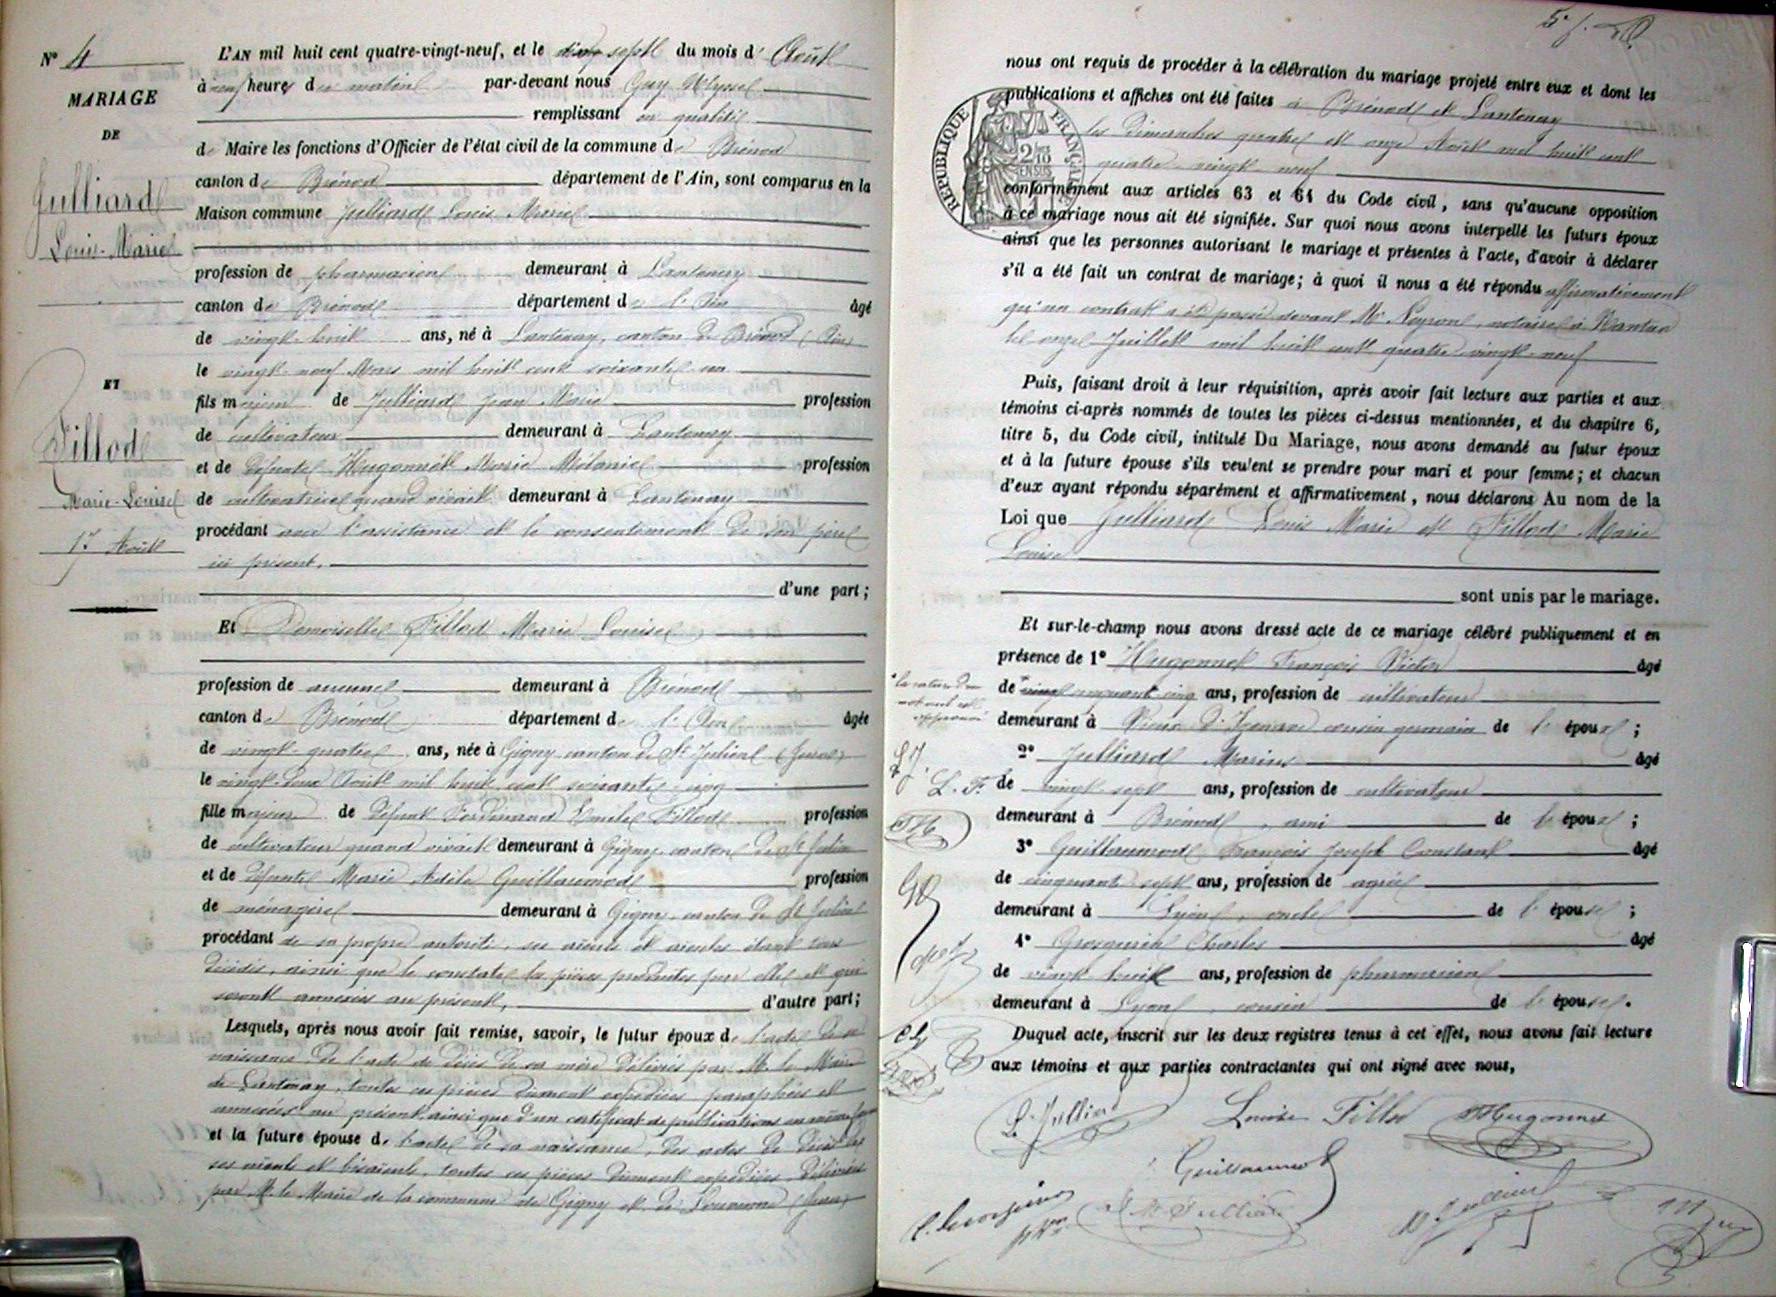 N° 4
MARIAGE
DE
Julliard
Louis-Marie
ET
Fillod
Marie-Louise
17 Août
L'AN mil huit cent quatre-vingt-neuf, et le dix sept du mois d' Août
à neuf heures du matin par-devant nous Guy Ulysse
remplissant en qualité
de Maire les fonctions d'Officier de l'état civil de la commune de Brénod
canton de Brénod département de l'Ain, sont comparus en la
Maison commune Julliard Louis Marie
profession de pharmacien demeurant à Lantenay
canton de Brénod département de l'Ain âgé
de vingt-huit ans, né à Lantenay, canton de Brénod (Ain)
le vingt-neuf Mars mil huit cent soixante-un
fils majeur de Julliard Jean Marie profession
de cultivateur demeurant à Lantenay
et de défunte Hugonnet Marie Mélanie profession
de cultivatrice quand vivait demeurant à Lantenay
procédant avec l'assistance et le consentement de son père
ici présent,
d'une part;
Et Demoiselle Fillod Marie Louise
profession de aucune demeurant à Brénod
canton de Brénod département de l'Ain âgée
de vingt-quatre ans, née à Gigny canton de St Julien (Jura)
le vingt-deux Août mil huit cent soixante-cinq
fille majeure de défunt Ferdinand Emile Fillod profession
de cultivateur quand vivait demeurant à Gigny canton de St Julien
et de défunte Marie Adèle Guillaumod profession
de ménagère demeurant à Gigny, canton de St Julien
procédant de sa propre autorité, ses aïeuls et aïeules étant tous
décédés, ainsi que le constate les pièces produites par elle et qui
seront annexées au présent, d'autre part;
Lesquels, après nous avoir fait remise, savoir, le futur époux de l'acte de sa
naissance de l'acte de décès de sa mère délivrés par M. le Maire
de Lantenay, toutes ces pièces dument expédiées paraphées et
annexées au présent ainsi que d'un certificat de publications
et la future épouse de l'acte de sa naissance, des actes de décès de
ses aïeuls et bisaïeuls, toutes ces pièces dument expédiées délivrées
par M. le Maire de la commune de Gigny et de (Jura)
nous ont requis de procéder à la célébration du mariage projeté entre eux et dont les
publications et affiches ont été faites à Brénod et Lantenay
les dimanches quatre et onze Août mil huit cent
quatre-vingt-neuf
RÉPUBLIQUE FRANÇAISE
2/10 EN SUS
conformément aux articles 63 et 64 du Code civil, sans qu'aucune opposition
à ce mariage nous ait été signifiée. Sur quoi nous avons interpellé les futurs époux
ainsi que les personnes autorisant le mariage et présentes à l'acte, d'avoir à déclarer
s'il a été fait un contrat de mariage; à quoi il nous a été répondu affirmativement
qu'un contrat a été passé devant Me Neyron, notaire à Nantua
le onze Juillet mil huit cent quatre-vingt-neuf
Puis, faisant droit à leur réquisition, après avoir fait lecture aux parties et aux
témoins ci-après nommés de toutes les pièces ci-dessus mentionnées, et du chapitre 6,
titre 5, du Code civil, intitulé Du Mariage, nous avons demandé au futur époux
et à la future épouse s'ils veulent se prendre pour mari et pour femme; et chacun
d'eux ayant répondu séparément et affirmativement, nous déclarons Au nom de la
Loi que Julliard Louis Marie et Fillod Marie
Louise
sont unis par le mariage.
Et sur-le-champ nous avons dressé acte de ce mariage célébré publiquement et en
présence de 1° Hugonnet François Victor âgé
de cinquante cinq ans, profession de cultivateur
demeurant à Vieux d'Izenave cousin germain de l'époux;
2° Julliard Marius âgé
de vingt-sept ans, profession de cultivateur
demeurant à Brénod, ami de l'époux;
3° Guillaumod François Joseph Constant âgé
de cinquante-sept ans, profession de agréé
demeurant à Lyon, oncle de l'épouse;
4° Grosgurin Charles âgé
de vingt huit ans, profession de pharmacien
demeurant à Lyon, cousin de l'épouse.
Duquel acte, inscrit sur les deux registres tenus à cet effet, nous avons fait lecture
aux témoins et aux parties contractantes qui ont signé avec nous,
L. J.
L. F.
L. Julliard Louise Fillod Hugonnet
Guillaumod
M. Julliard